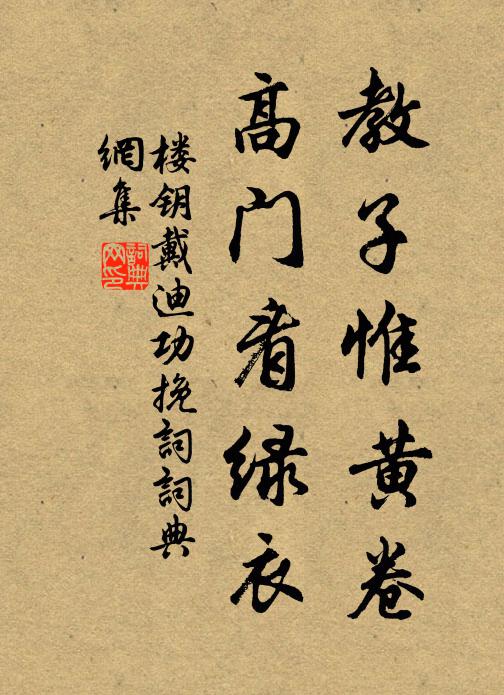 教子惟黄卷
高门看绿衣
楼钥戴迪功挽词词典
網集
詞典网印